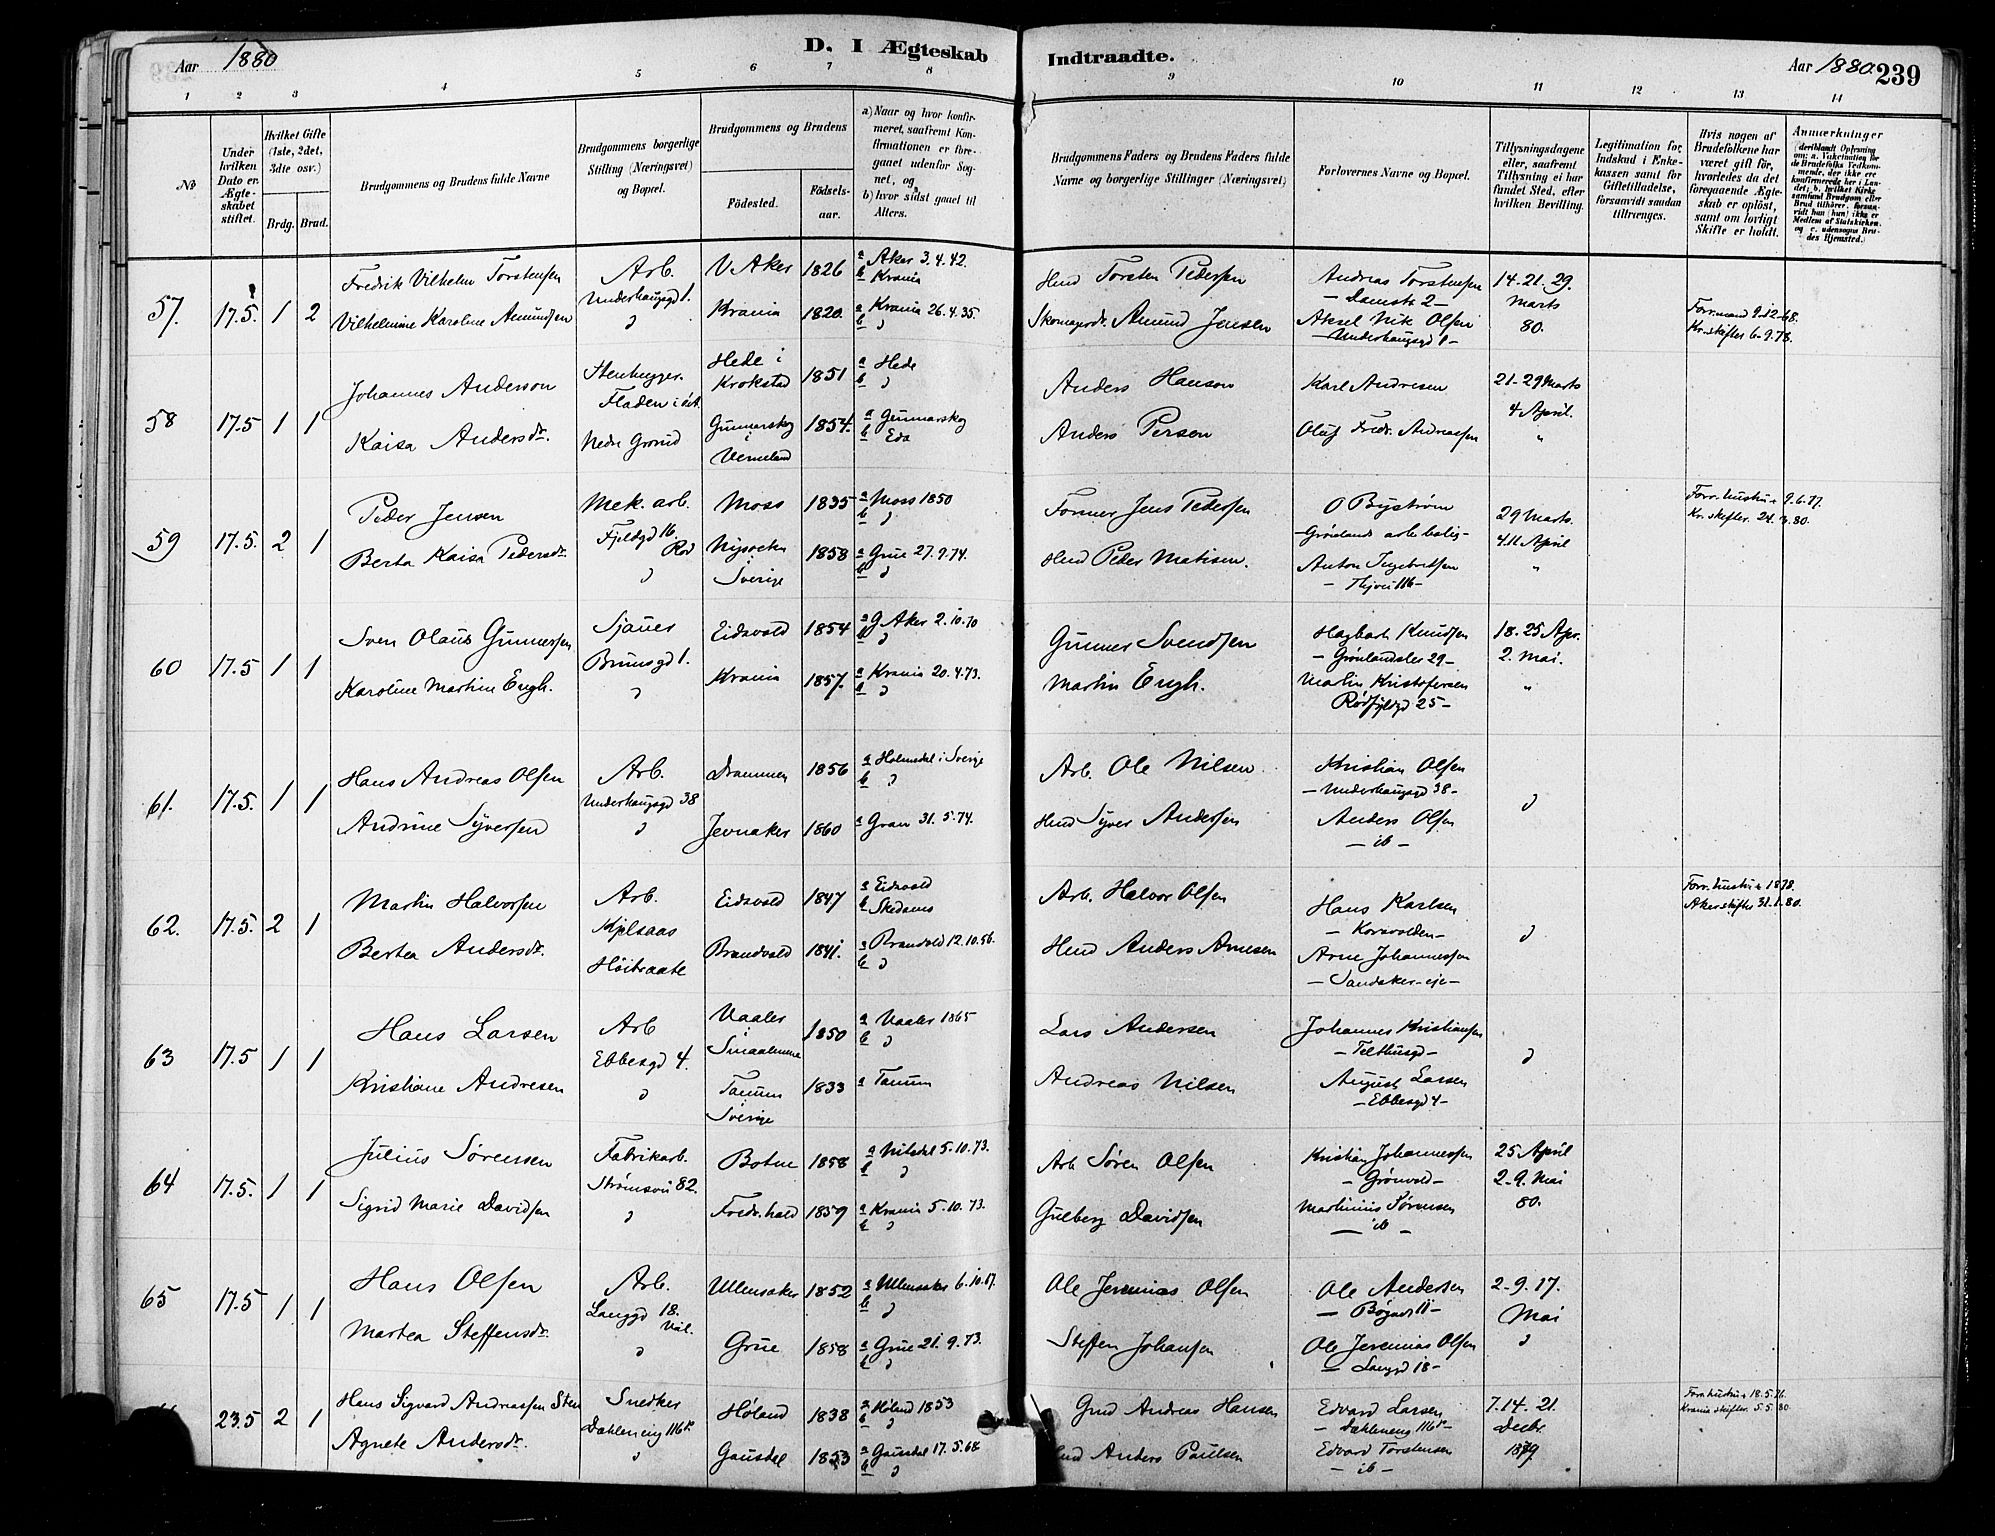 Aar 1880
D. I Ægteskab Indtraadte.
Aar 1880. 239
1 2 3 4 5 6 7 8 9 10 11 12 13 14
No
Under hvilken Dato er Ægteskabet stiftet.
Hvilket Gifte (1ste, 2det, 3dte osv.)
Brdg. Brud.
Brudgommens og Brudens fulde Navne
Brudgommens borgerlige Stilling (Næringsvei) og Bopæl.
Brudgommens og Brudens
Födested.
Födsels-aar.
a) Naar og hvor konfirmeret, saafremt Konfirmationen er foregaaet udenfor Sognet, og
b) hvor sidst gaaet til Alters.
Brudgommens Faders og Brudens Faders fulde Navne og borgerlige Stillinger (Næringsvei)
Forlovernes Navne og Bopæl.
Tillysningsdagene eller, saafremt Tillysning ei har fundet Sted, efter hvilken Bevilling.
Legitimation for Indskud i Enkekassen samt for Giftetilladelse, forsaavidt saadan tiltrænges.
Hvis nogen af Brudefolkene har været gift før, hvorledes da det foregaaende Ægteskab er opløst, samt om lovligt Skifte er holdt.
Anmærkninger
57. 17.5. 1 2
Fredrik Vilhelm Torstensen Arb. V Aker 1826 a Aker 3.4.42. b Krania
Underhaugsgd 1.
Vilhelmine Karoline Amundsen Krania 1820. a Krania 26.4.35
Hmd Torsten Pedersen Andreas Torstensen 14. 21. 29. Marts 80.
– Damstr 2 –
Skomagersv. Amund Jensen Aksel Nik Olsen
– Underhaugsgd 1 –
Forr. mand 9-12-68.
Kr. skifter 6-9.78.
58 17.5 1 1
Johannes Anderson Stenhugger. Hede i Krokstad 1851 a Hede
Fladen i
Kaisa Andersdr. Nedr Grønd Gunnarskog i Vermeland 1854. a Gunnarskog b Eda
Anders Hanson Karl Andresen 21-29 Marts
4 April.
Anders Person Oluf Fredr. Andreasen "
59 17.5. 2 1
Peder Jensen Mek. arb. Moss 1835 a Moss 1850
Fjeldgd 16
Berta Kaisa Pedersdr. Sverige 1858 a Grue 27.9.74.
Former Jens Pedersen O Byström 29 Marts
– Grønlands arb. bolig – 4.11 April
Hmd Peder Matisen. Anton Ingebretsen "
– 116 –
Forr. hustru + 9.6.77.
Kr. skifter. 24. .80.
60 17.5 1 1
Sven Olaus Gunnersen Sjauer Eidsvold 1854 a G Aker 2.10.70
Brunsgd 1.
Karoline Martine Engh. Krania 1857. a Krania 20.4.73.
Gunner Svendsen Hagbart Knudsen 18. 25 Apr.
– Grønlandsler 29 – 2. Mai.
Martin Engh. Martin Kristofersen "
Rødfyldgd 25 –
61. 17.5. 1 1
Hans Andreas Olsen Arb. Drammen 1856 a Holmedal i Sverige
Underhaugsgd 38
Andrine Syversen Jevnaker 1860 a Gran 31.5.74.
Arb. Ole Nilsen Kristian Olsen
– Underhaugsgd 38 –
Hmd Syver Andersen Anders Olsen
– ib –
62. 17.5. 2 1
Martin Halvorsen Arb. Eidsvold 1847 a Eidsvold b Skedsmo
Kjelsaas
Bertea Andersdr. Høibraate Brandvold 1841. a Brandvold 12.10.56.
Arb. Halvor Olsen Hans Karlsen
– Korsvolden –
Hmd Anders Arnesen Arne Johannessen
– Sandaker-eje –
Forr. hustru + 1878.
Aker skifter 31.1.80.
63 17.5 1 1
Hans Larsen Arb Vaaler i Smaalenene 1850 a Vaaler 1865
Ebbesgd 4.
Kristiane Andresen Tanum i Sverige 1833 a Tanum
Lars Andersen Johannes Kristiansen
– Telthusgd –
Andreas Nilsen August Larsen
– Ebbesgd 4 –
64 17.5. 1 1
Julius Sørensen Fabrikarb. Botne 1858 a Nitedal 5.10.73.
Strømsvei 82.
Sigrid Marie Davidsen Fredr.hald 1859 a Krania 5.10.73.
Arb Søren Olsen Kristian Johannessen 25 April
– Grønvold – 2-9. Mai
Gulberg Davidsen Martinius Sørensen 80.
– ib –
65 17.5 1 1
Hans Olsen Arb. Ullensaker 1852 a Ullensaker 6.10.67.
Langgd 18. Vål.
Martea Steffensdr. Grue 1858 a Grue 21.9.73.
Ole Jeremias Olsen Ole Andersen 2-9. 17. Mai
– 11 –
Steffen Johansen Ole Jeremias Olsen
– Langgd 18 –
23.5 2 1
Hans Sigvard Andreassen Sten Snedker Høland 1838 a Høland 1853
Dahleneng 116
Agnete Andersdr. Gausdal 1853 a Gausdal 17.5.68
Gmd Andreas Hansen Edvard Larsen 7.14. 21. Decbr. 1879.
– Dahleneng 116 –
Hmd Anders Paulsen Edvard Torstensen
– ib –
Forr. hustru + 18.5.76
Krania skifter. 5.5.80.